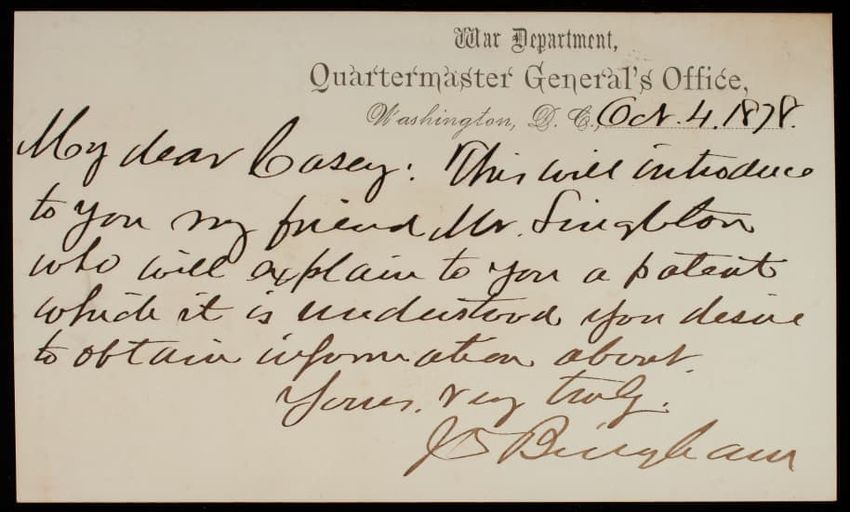 War Department,
Quartermaster General's Office,
Washington, D. C., Oct. 4. 1878.
My dear Casey: This will introduce
to you my friend Mr. Singleton
who will explain to you a patent
which it is understood you desire
to obtain information about.
Yours, very truly.
J D Bingham